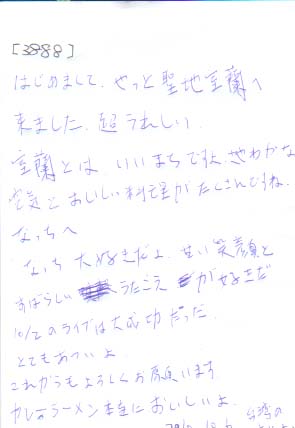 [3888]
はじめまして、やっと聖地室蘭へ
来ました、超うれしい、
室蘭とは、いいまちですよ、さわやかな
空気とおいしい料理がたくさんですね、
なっちへ
なっち大好きだよ、甘い笑顔と
すばらしい うたごえ が好きだ
10/2のライブは大成功だった、
とてもあついよ
これからもよろしくお願います
カレーラーメン本当においしいよ、
台湾の